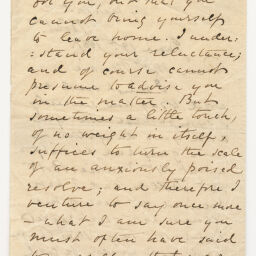 you, but that you
cannot bring yourself
to leave home. I under:
:stand your reluctance;
and of course cannot
presume to advise you
in the matter. But
sometimes a little touch,
of no weight in itself,
suffices to turn the scale
of an anxiously poised
resolve; and therefore I
venture to say once more
– what I am sure you
must often have said
to